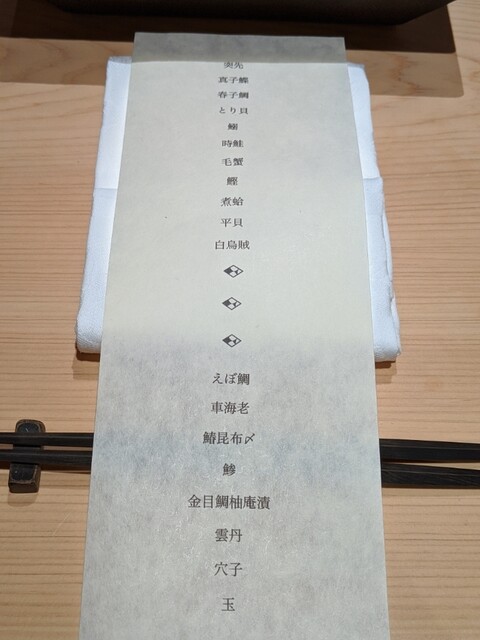 真子鰈
春子鯛
とり貝
時鮭
毛蟹
鰹
煮蛤
平貝
白烏賊
えぼ鯛
車海老
鰆昆布〆
鯵
金目鯛柚庵漬
雲丹
穴子
玉